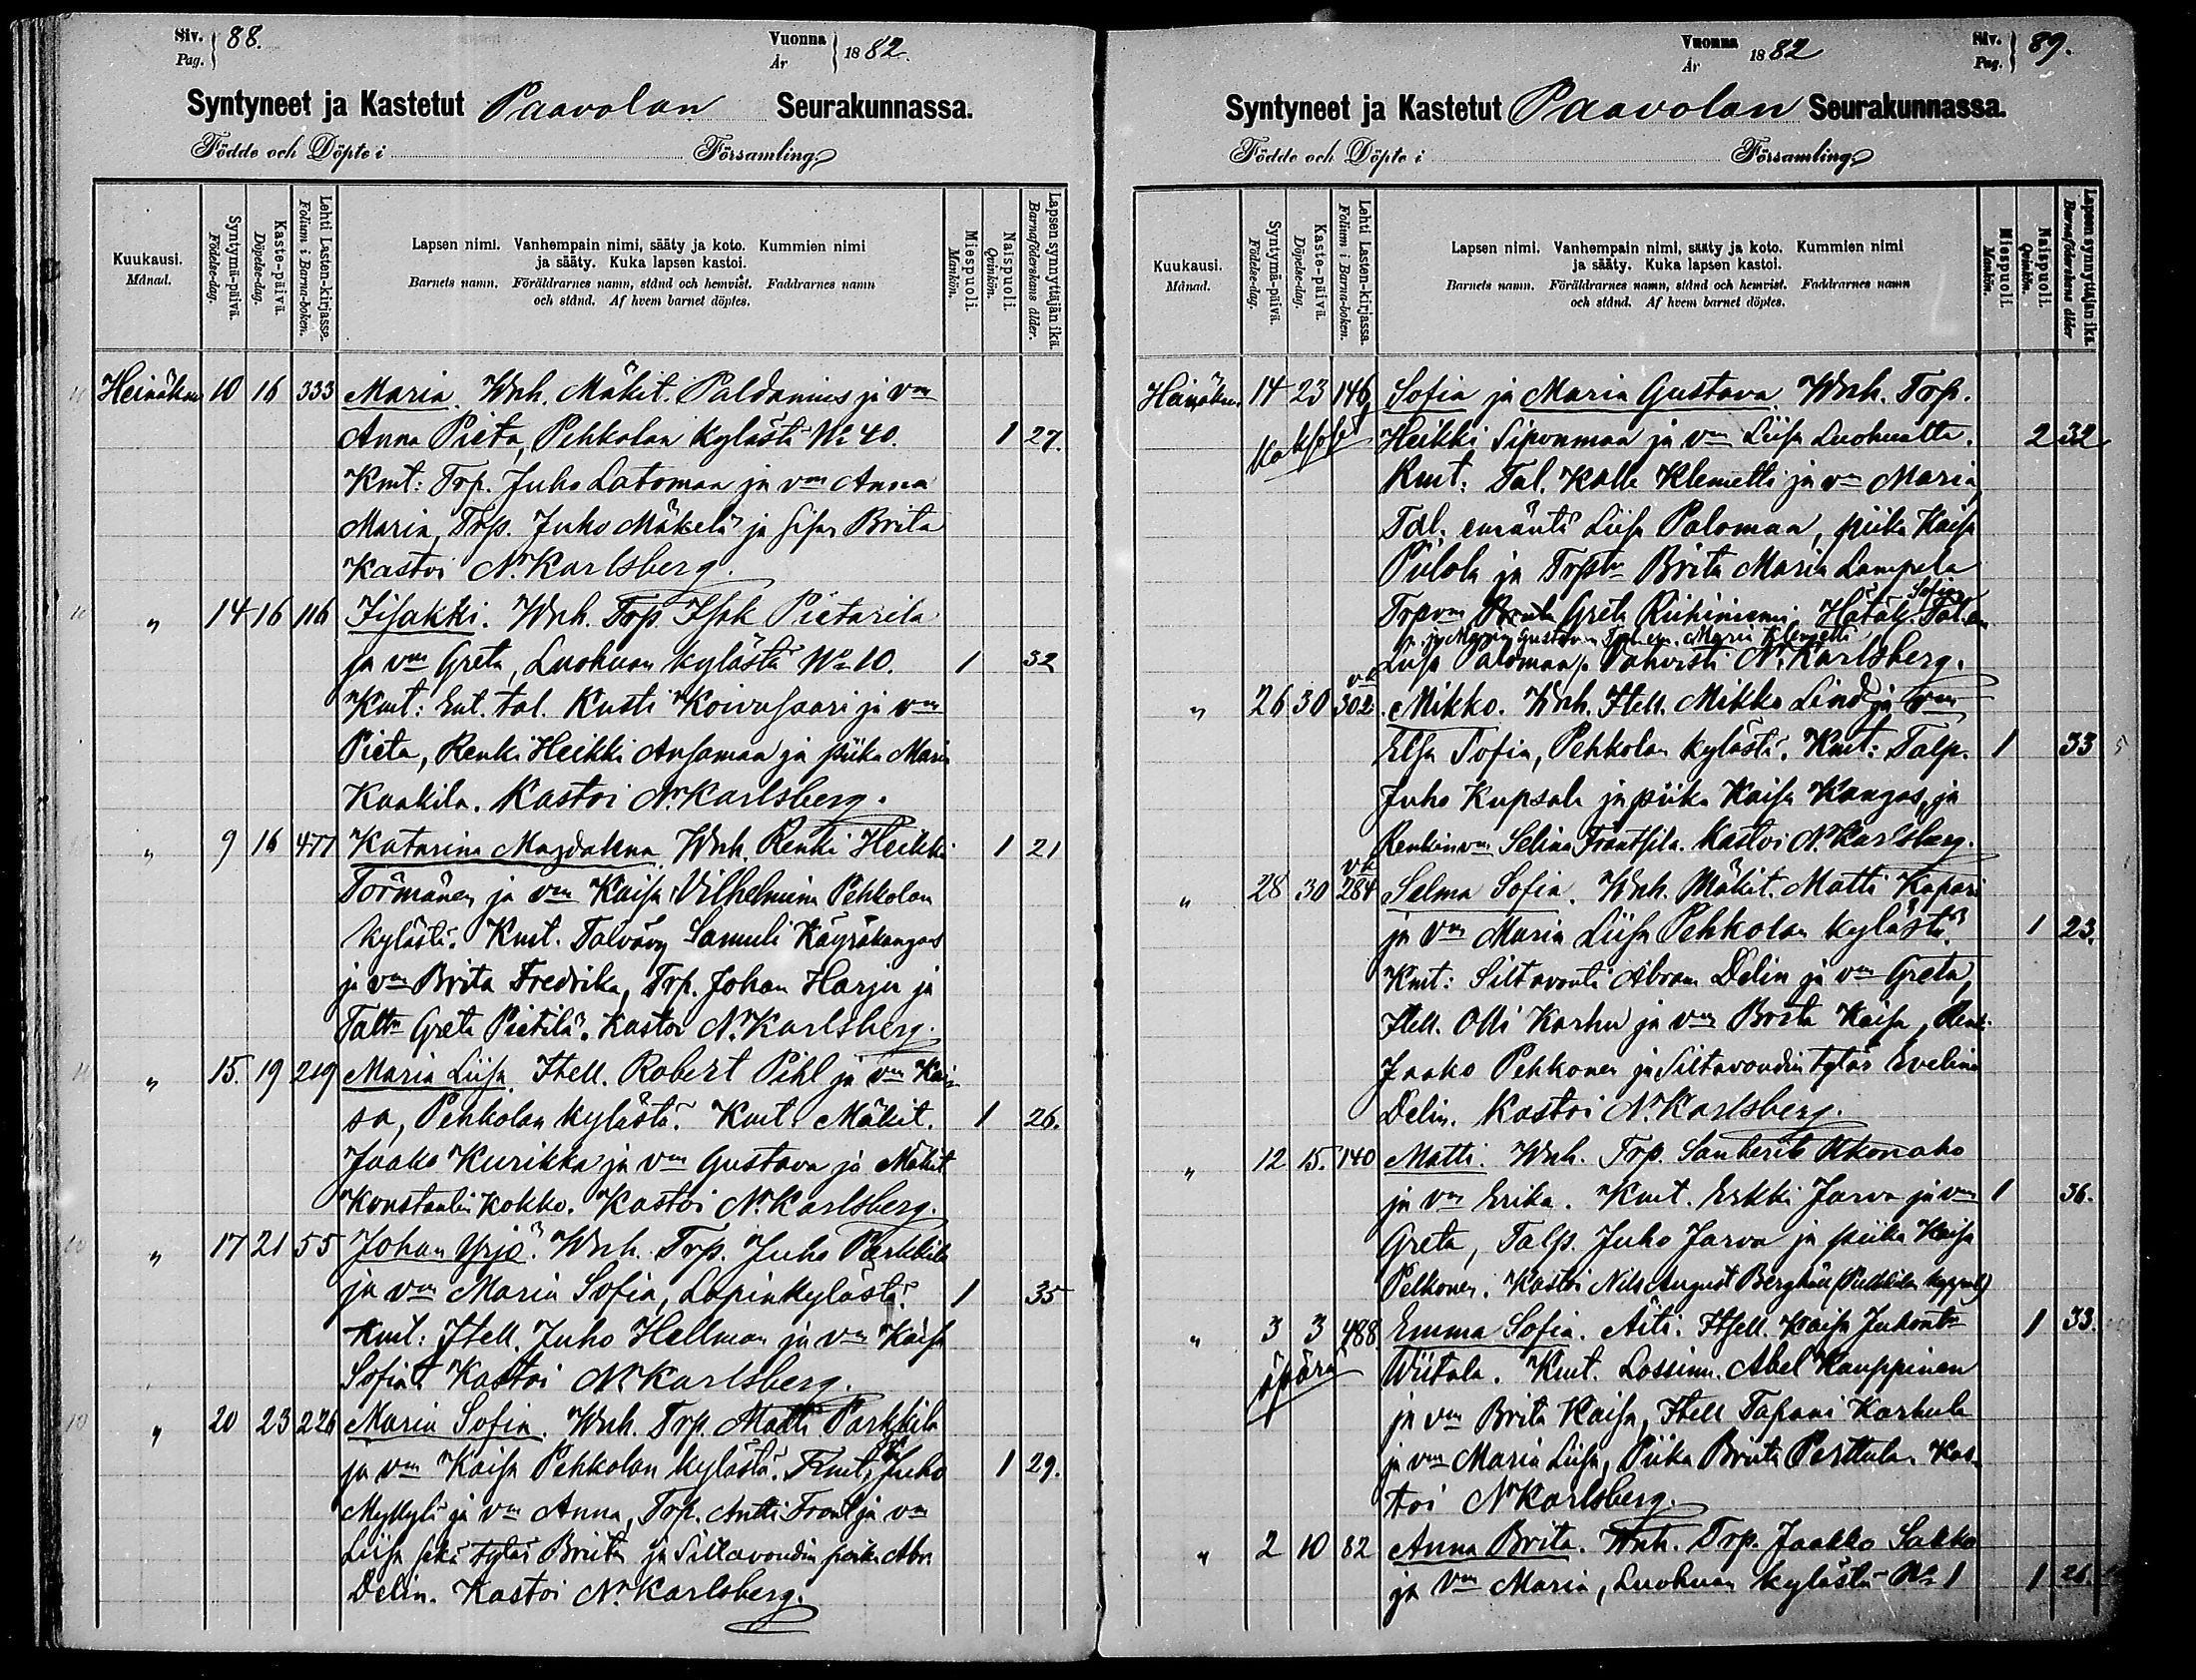 Siv. Pag. 88. Vuonna År 1882.
Syntyneet ja Kastetut Paavolan Seurakunnassa.
Födde och Döpte i Församling
Kuukausi. Månad.
Syntymä-päivä. Födelse-dag.
Kaste-päivä. Döpelse-dag.
Lehti Lasten-kirjassa. Folium i Barna-boken.
Lapsen nimi. Vanhempain nimi, sääty ja koto. Kummien nimi
ja sääty. Kuka lapsen kastoi.
Barnets namn. Föräldrarnes namn, stånd och hemvist. Faddrarnes namn
och stånd. Af hvem barnet döptes.
Miespuoli. Mankön.
Naispuoli. Qvinkön.
Lapsen synnyttäjän ikä. Barnaföderskans ålder.
Heinäkuu 10 16 333 Maria. Wnh. Mäkit. Paldanius ja vm
Anna Pieta, Pehkolan kylästä No 40. 1 27.
Kmt: Trp. Juho Latomaa ja vm Anna
Maria, Trp. Juho Mäkelä ja sisar Brita
Kastoi N. Karlsberg.
" 14 16 116 Iisakki. Wnh. Trp. Isak Pietarila
ja vm Greta, Luohuan kylästä No 10. 1 32
Kmt: Ent. tal. Kusti Koivusaari ja vm
Pieta, Renki Heikki Ansamaa ja piika Maria
Kaakila. Kastoi N. Karlsberg.
" 9 16 477 Katarina Magdalena Wnh. Renki Heikki 1 21
Törmänen ja vm Kaisa Vilhelmina Pehkolan
kylästä. Kmt. Talvävy Samuli Käyräkangas
ja vm Brita Fredrika, Trp. Johan Harju ja
Taltr Greta Pietilä. Kastoi N. Karlsberg.
" 15. 19 219 Maria Liisa. Itsell. Robert Pihl ja vm Kai
sa, Pehkolan kylästä. Kmt. Mäkit. 1 26.
Jaako Kurikka ja vm Gustava ja Mäkit
Konstantin Kokko. Kastoi N. Karlsberg.
" 17 21 55 Johan Yrjö. Wnh. Trp. Juho Parkkila
ja vm Maria Sofia, Lapinkylästä. 1 35
Kmt: Itsell. Juho Hellman ja vm Kaisa
Sofia Kastoi N. Karlsberg.
" 20 23 226 Maria Sofia. Wnh. Trp. Matti Parkkila
ja vm Kaisa Pehkolan kylästä. Kmt, Juho 1 29.
Myllylä ja vm Anna, Trp. Antti Frant ja vm
Liisa sekä tytär Briita ja Siltavoudin poika Abr.
Delin. Kastoi N. Karlsberg.
Vuonna År 1882 Siv. Pag. 89.
Syntyneet ja Kastetut Paavolan Seurakunnassa.
Födde och Döpte i Församling
Kuukausi. Månad.
Syntymä-päivä. Födelse-dag.
Kaste-päivä. Döpelse-dag.
Lehti Lasten-kirjassa. Folium i Barna-boken.
Lapsen nimi. Vanhempain nimi, sääty ja koto. Kummien nimi
ja sääty. Kuka lapsen kastoi.
Barnets namn. Föräldrarnes namn, stånd och hemvist. Faddrarnes namn
och stånd. Af hvem barnet döptes.
Miespuoli. Mankön.
Naispuoli. Qvinkön.
Lapsen synnyttäjän ikä. Barnaföderskans ålder
Heinäkuu. 14 23 146 Sofia ja Maria Gustava. Wnh. Trp.
Heikki Siponmaa ja vm Liisa Luohualta. 2 32
Kmt: Tal. Kalle Klemetti ja vm Maria,
Tal. emäntä Liisa Palomaa, piika Kaisa
Piilola ja Trptr Brita Maria Lampela
Trpvm Greta Riihiniemi Hätäk. Sofia Tal. em
ja Maria Gustava Tal. em. Maria Klemetti
Liisa Palomaa. Vahvisti N. Karlsberg.
" 26 30 302 Mikko. Wnh. Itsell. Mikko Lind ja vm
Elsa Sofia, Pehkolan kylästä. Kmt: Talp. 1 33
Juho Kupsala ja piika Kaisa Kangas, ja
Renkinvm Selina Frantsila. Kastoi N. Karlsberg.
" 28 30 284 Selma Sofia. Wnh. Mäkit. Matti Kapari
ja vm Maria Liisa Pehkolan kylästä. 1 23.
Kmt: Siltavouti Abram Delin ja vm Greta,
Itsell. Olli Karhu ja vm Brita Kaisa, Renki
Jaako Pehkonen ja Siltavoudin tytär Evelina
Delin. Kastoi N. Karlsberg.
" 12 15. 140 Matti. Wnh. Trp. Sanherib Ukonaho
ja vm Erika. Kmt. Erkki Jarva ja vm 1 36.
Greta, Talp. Juho Jarva ja piika Kaisa
Pelkonen. Kastoi Nils August Berghäll
" 3 3 488 Emma Sofia. Äiti. Itsell. Kaisa Juhontr 1 33.
äpärä Wiitala. Kmt. Abel Kauppinen
ja vm Brita Kaisa, Itsell Tapani Karhula
ja vm Maria Liisa, Piika Briita Perttula. Kas-
toi N Karlsberg.
" 2 10 82 Anna Brita. Wnh. Trp. Jaakko Sakko
ja vm Maria, Luohuan kylästä No 1 1 26.